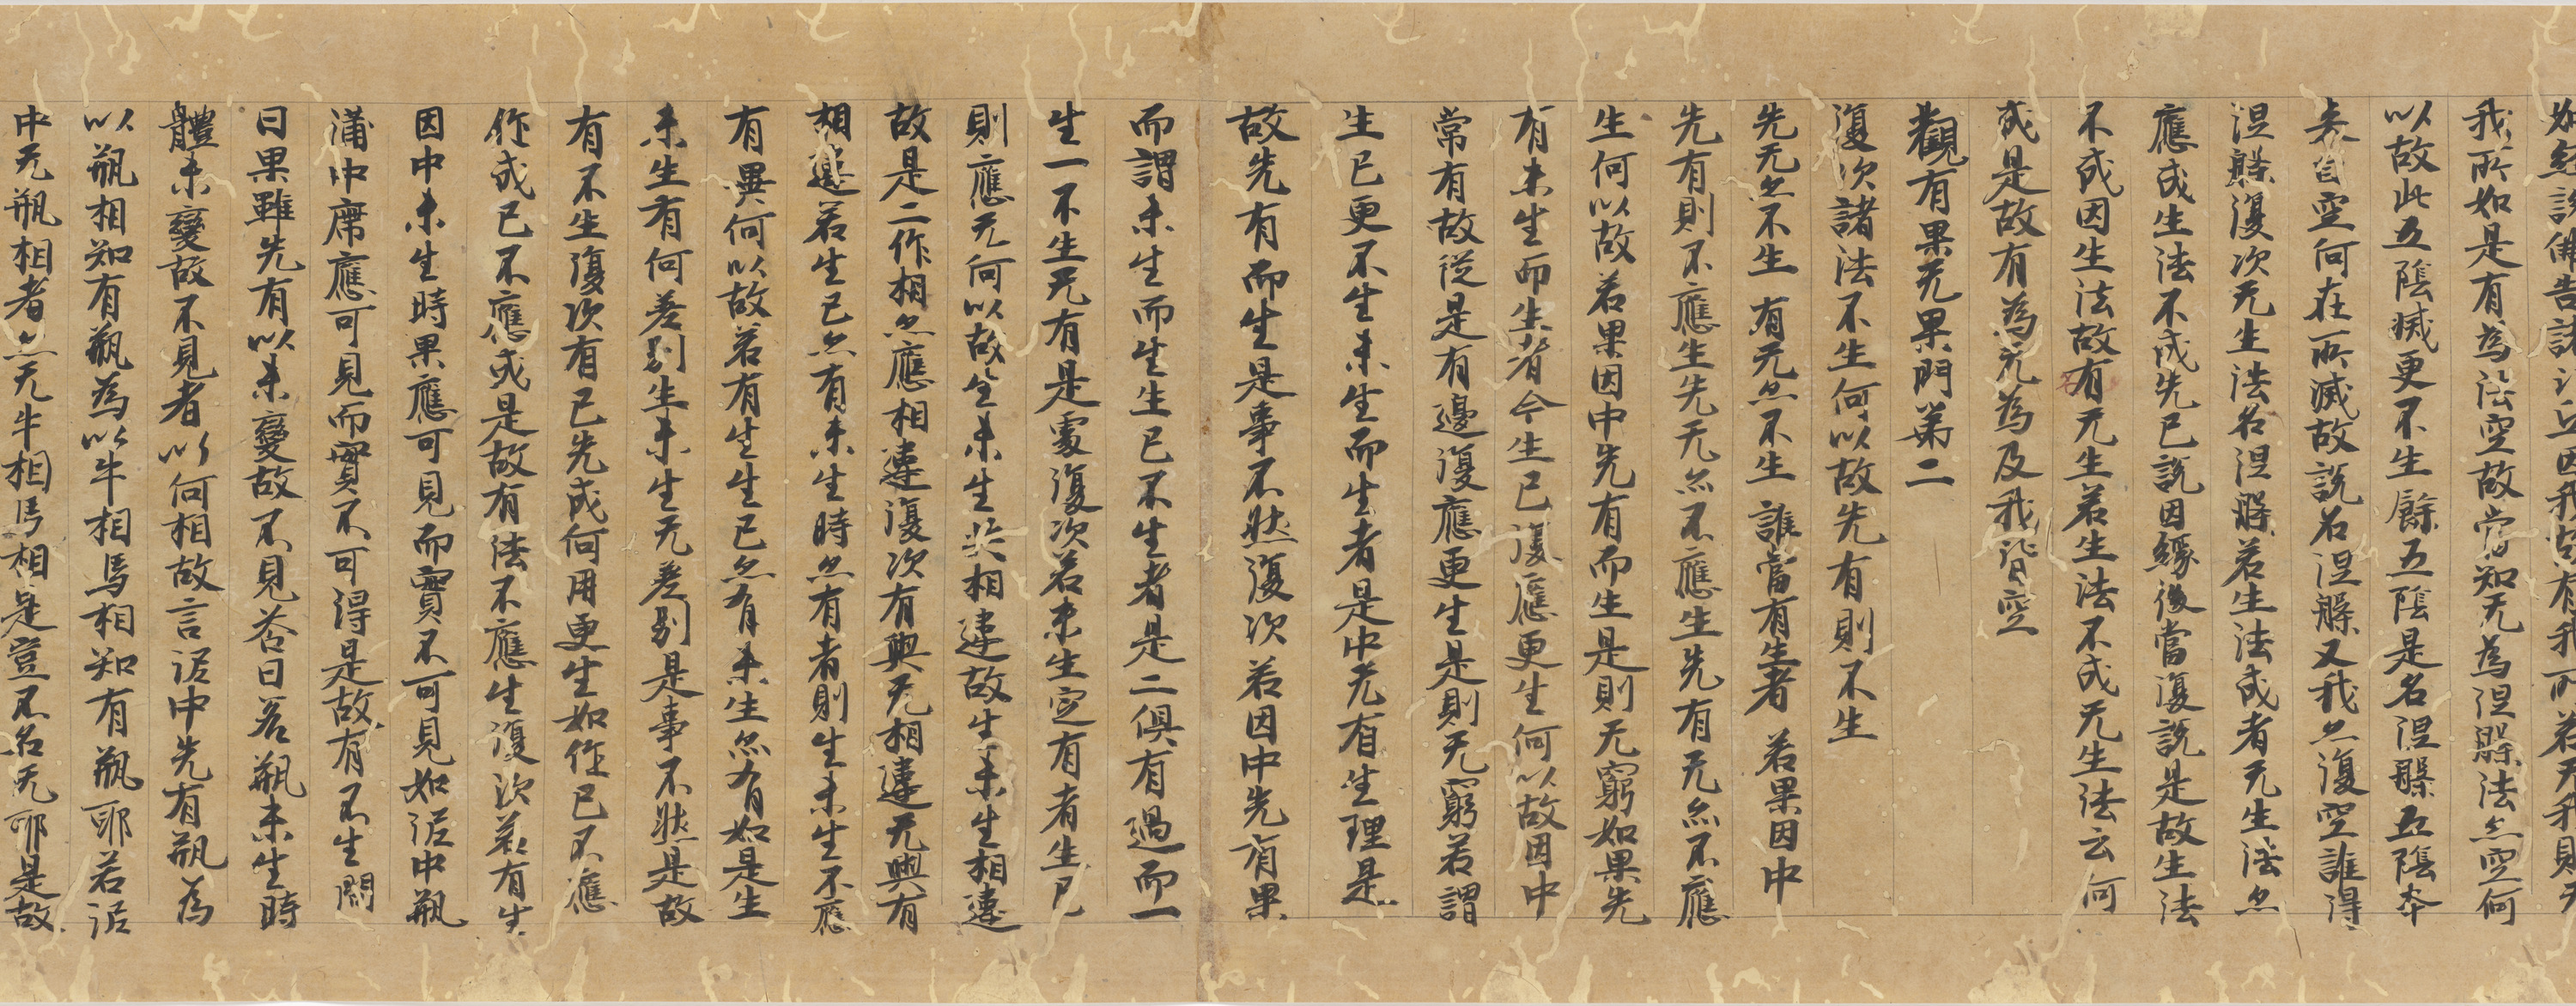 如經說佛告諸比丘因我故有我所若无我則无
我所如是有為法空故當知无為涅槃法亦空何
以故此五陰滅更不生餘五陰是名涅槃五陰本
來自空何在所滅故說名涅槃又我亦復空誰得
涅槃復次无生法名涅槃若生法成者无生法亦
應成生法不成先已說因緣後當復說是故生法
不成因生法故有无生若生法不成无生法云何
成是故有為无為及我皆空
觀有果无果門第二
復次諸法不生何以故先有則不生
先无亦不生 有无亦不生 誰當有生者 若果因中
先有則不應生先无亦不應生先有无亦不應
生何以故若果因中先有而生是則无窮如果先
有未生而生者今生已復應更生何以故因中
常有故從是有邊復應更生是則无窮若謂
生已更不生未生而生者是中无有生理是
故先有而生是事不然復次若因中先有果
而謂未生而生生已不生者是二俱有過而一
生一不生无有是處復次若未生定有者生已
則應无何以故生未生共相違故生未生相違
故是二作相亦應相違復次有與无相違无與有
相違若生已亦有未生時亦有者則生未生不應
有異何以故若有生生已亦有未生亦有如是生
未生有何差別生未生无差別是事不然是故
有不生復次有已先成何用更生如作已不應
作成已不應成是故有法不應生復次若有生
因中未生時果應可見而實不可見如泥中瓶
蒲中席應可見而實不可得是故有不生問
曰果雖先有以未變故不見答曰若瓶未生時
體未變故不見者以何相故言泥中先有瓶為
以瓶相知有瓶為以牛相馬相知有瓶耶若泥
中无瓶相者亦无牛相馬相是豈不名无耶是故